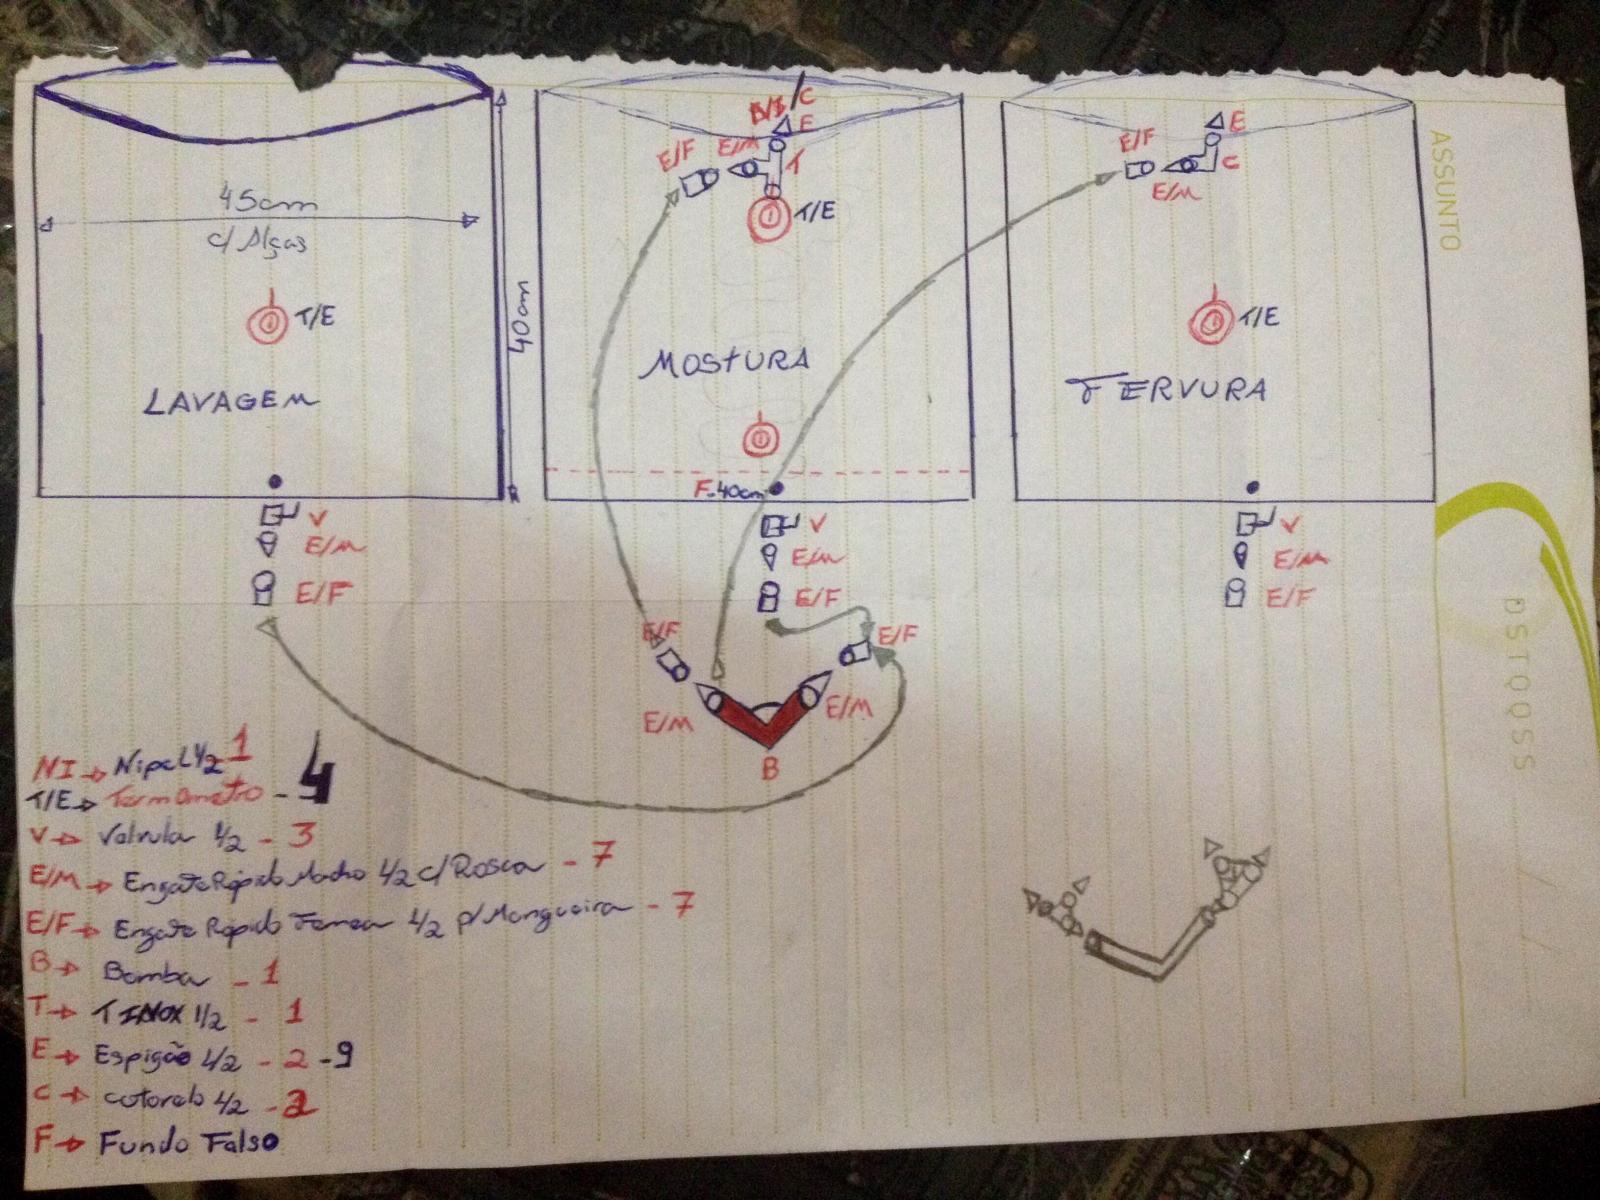 ASSUNTO
DSTQQSS
45cm
c/ Alças
40cm
T/E
LAVAGEM
V
E/M
E/F
/C
E
E/M
E/F
T
T/E
MOSTURA
F-40cm
V
E/M
E/F
E
E/F
C
E/M
T/E
FERVURA
V
E/M
E/F
E/F
E/F
E/M
E/M
B
NI → Nipel 1/2 1
T/E → Termometro - 4
V → Valvula 1/2 - 3
E/M → Engate Rápido Macho 1/2 c/ Rosca - 7
E/F → Engate Rápido Femea 1/2 p/ Mangueira - 7
B → Bomba - 1
T → T INOX 1/2 - 1
E → Espigão 1/2 - 2 - 9
C → cotovelo 1/2 - 2
F → Fundo Falso